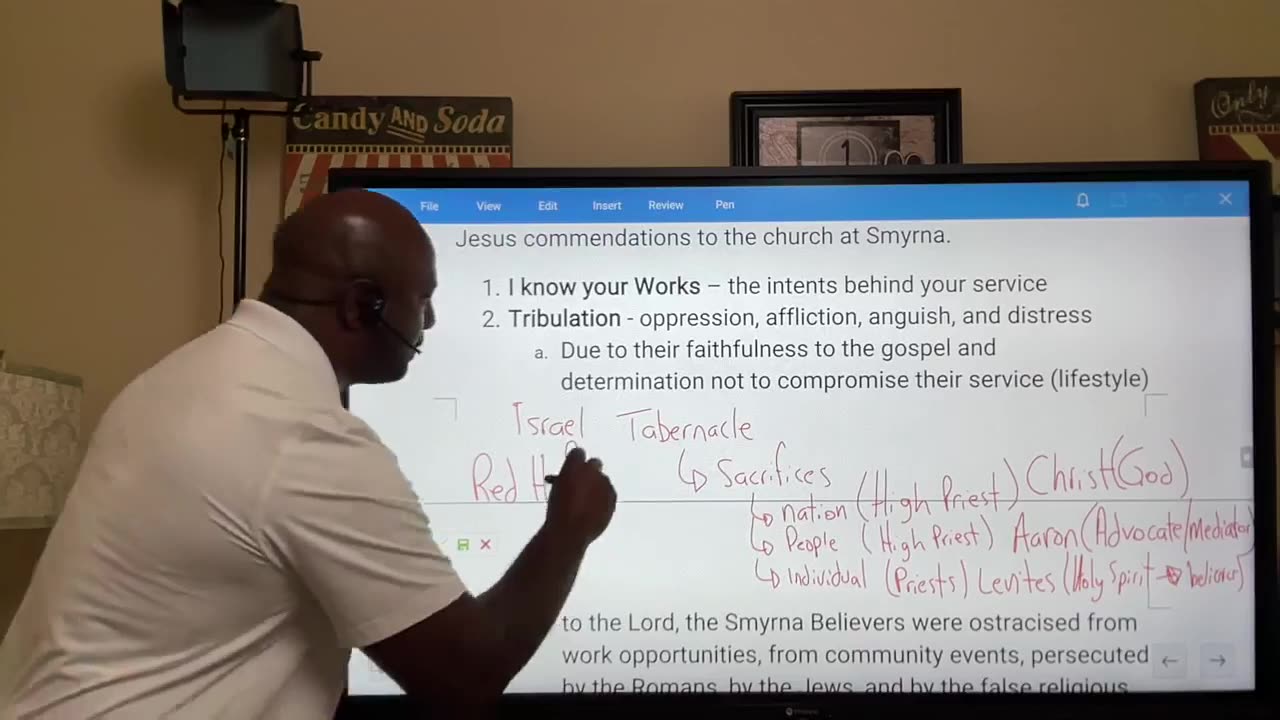 Candy AND Soda
Only
1
File View Edit Insert Review Pen
Jesus commendations to the church at Smyrna.
1. I know your Works – the intents behind your service
2. Tribulation - oppression, affliction, anguish, and distress
a. Due to their faithfulness to the gospel and
determination not to compromise their service (lifestyle)
Israel Tabernacle
Red H
↳ Sacrifices
↳ nation (High Priest) Christ (God)
↳ People (High Priest) Aaron (Advocate/Mediator)
↳ Individual (Priests) Levites (Holy Spirit → believer)
to the Lord, the Smyrna Believers were ostracised from
work opportunities, from community events, persecuted
by the Romans, by the Jews, and by the false religious